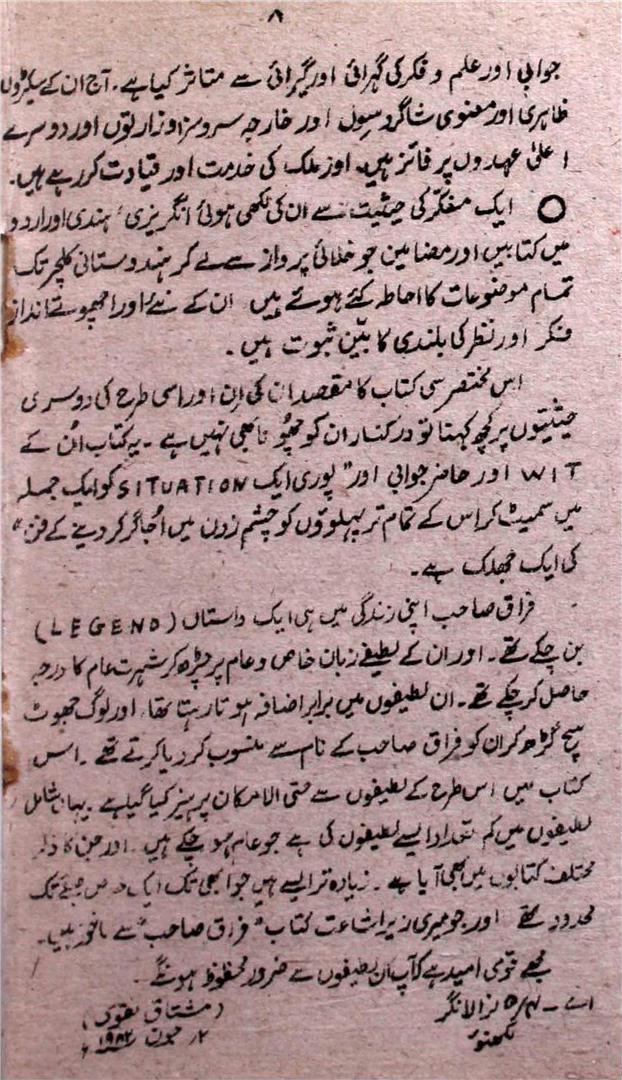 ۸
جوابی اور علم و فکر کی گہرائی اور گیرائی سے متاثر کیا ہے۔ آج ان کے سیکڑوں
ظاہری اور معنوی شاگرد سول اور خارجہ سروسز وزارتوں اور دوسرے
اعلیٰ عہدوں پر فائز ہیں۔ اور ملک کی خدمت اور قیادت کر رہے ہیں۔
○ ایک مفکر کی حیثیت سے ان کی لکھی ہوئی انگریزی، ہندی اور اردو
میں کتابیں اور مضامین جو خلائی پرواز سے لے کر ہندوستانی کلچر تک
تمام موضوعات کا احاطہ کئے ہوئے ہیں ان کے نئے اور اچھوتے انداز
فکر اور نظر کی بلندی کا بیّن ثبوت ہیں۔
اس مختصر سی کتاب کا مقصد ان کی اِن اور اسی طرح کی دوسری
حیثیتوں پر کچھ کہنا تو درکنار ان کو چھُونا بھی نہیں ہے۔ یہ کتاب اُن کے
WIT اور حاضر جوابی اور "پوری ایک SITUATION کو ایک جملہ
میں سمیٹ کر اس کے تمام تر پہلوؤں کو چشم زدن میں اُجاگر کر دینے کے فن"
کی ایک جھلک ہے۔
فراق صاحب اپنی زندگی میں ہی ایک داستان (LEGEND)
بن چکے تھے۔ اور ان کے لطیفے زبان خاص و عام پر چڑھ کر شہرت عام کا درجہ
حاصل کر چکے تھے۔ ان لطیفوں میں برابر اضافہ ہوتا رہتا تھا، اور لوگ جھوٹ
سچ گڑھ کر ان کو فراق صاحب کے نام سے منسوب کر دیا کرتے تھے۔ اس
کتاب میں اس طرح کے لطیفوں سے حتی الامکان پرہیز کیا گیا ہے۔ یہاں شامل
لطیفوں میں کم تعداد ایسے لطیفوں کی ہے جو عام ہو چکے ہیں۔ اور جن کا ذکر
مختلف کتابوں میں بھی آیا ہے۔ زیادہ تر ایسے ہیں جو ابھی تک ایک خاص حلقے تک
محدود تھے اور جو میری زیر اشاعت کتاب "فراق صاحب" سے ماخوذ ہیں۔
مجھے قوی امید ہے کہ آپ ان لطیفوں سے ضرور محظوظ ہونگے۔
اے ـ ۵/۴ نرالا نگر (مشتاق نقوی)
لکھنؤ ۲/ جون ۱۹۸۲ء